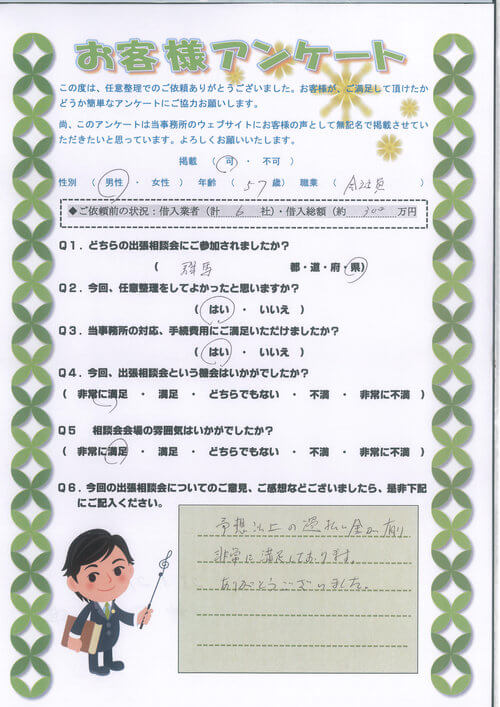 お客様アンケート
この度は、任意整理でのご依頼ありがとうございました。お客様が、ご満足して頂けたか
どうか簡単なアンケートにご協力お願いします。
尚、このアンケートは当事務所のウェブサイトにお客様の声として無記名で掲載させてい
ただきたいと思っています。よろしくお願いいたします。
掲載 ( 可 ・ 不可 )
性別 ( 男性 ・ 女性 ) 年齢 ( 57 歳) 職業 ( 会社員 )
◆ご依頼前の状況：借入業者（計 6 社）・借入総額（約 300 万円
Q1．どちらの出張相談会にご参加されましたか？
( 群馬 都・道・府・県)
Q2．今回、任意整理をしてよかったと思いますか？
( はい ・ いいえ )
Q3．当事務所の対応、手続費用にご満足いただけましたか？
( はい ・ いいえ )
Q4．今回、出張相談会という機会はいかがでしたか？
( 非常に満足 ・ 満足 ・ どちらでもない ・ 不満 ・ 非常に不満 )
Q5 相談会会場の雰囲気はいかがでしたか？
( 非常に満足 ・ 満足 ・ どちらでもない ・ 不満 ・ 非常に不満 )
Q6．今回の出張相談会についてのご意見、ご感想などございましたら、是非下記
にご記入ください。
予想以上の過払い金が有り
非常に満足しております。
ありがとうございました。